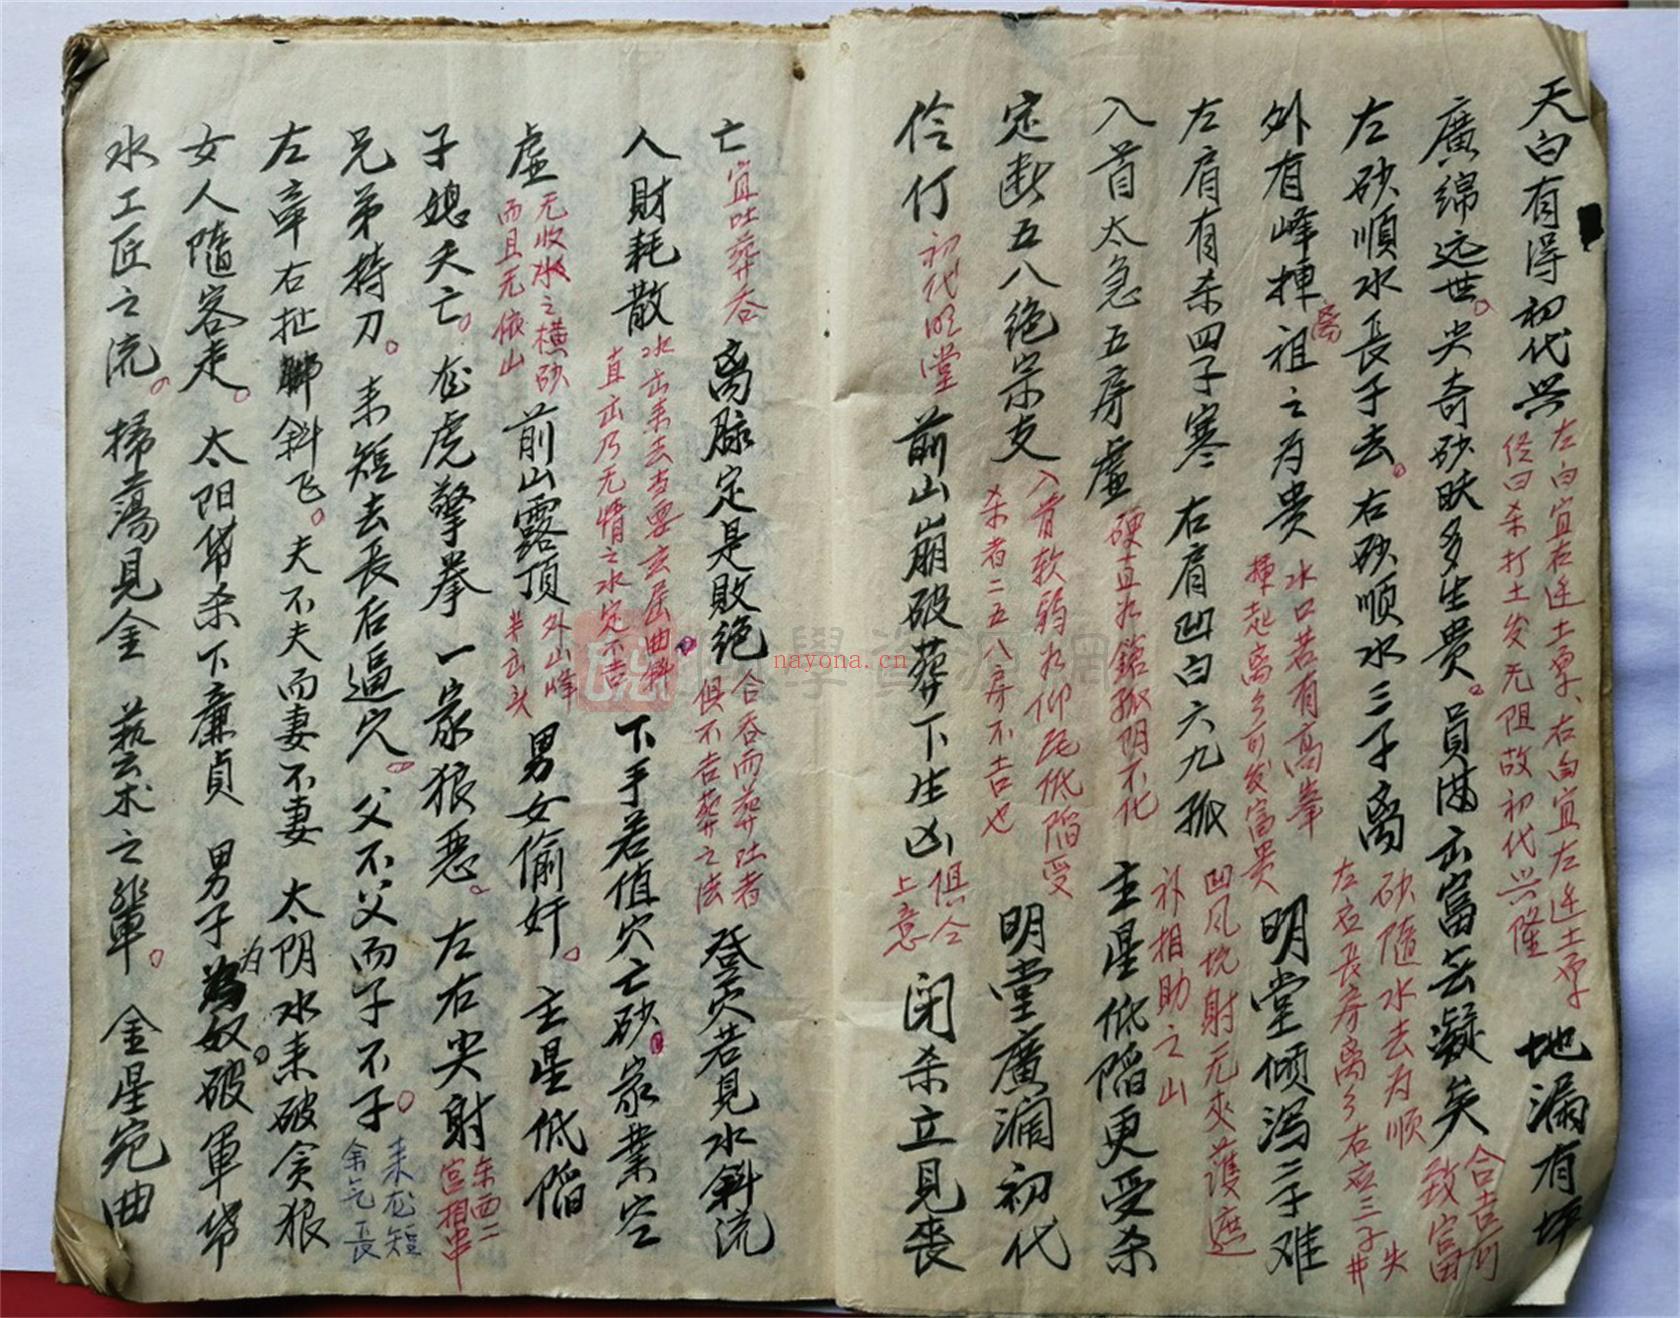 天白有得初代兴
左白宜右迁土原、右白宜左迁土原
杀打土发无阻故初代兴隆
地漏有坪
廣綿远世。尖奇砂趺多生贵。員满出富去凝矣
合吉可
致富
左砂順水長子去。右砂顺水三子离
砂隨水去为順
左应長房离乡右应三子
外有峰揷祖之为贵
离
水口若有高峯
揷起离乡可发富贵
明堂倾泻三子难
左肩有杀四子寒 右肩凹白六九孤
凹风坑射无夾護遮
补相助之山
入首太急五房虛
硬直如鎗孤阴不化
主星低陷更受杀
定断五八絶宗支
入首软弱如仰瓦低陷受
杀者二五八房不吉也
明堂廣漏初代
伶仃
初代明堂
前山崩破葬下生凶
俱仝
上意
闭杀立見丧
亡
宜吐葬吞
离脉定是敗絶
合吞而葬吐者
俱不吉葬之法
登穴若見水斜流
人財耗散
水出来去查要玄屈曲斜
直出乃无情之水定不吉
下手若值穴亡砂。家業空
虛
无收水之横砂
而且无依山
前山露頂
外山峰
半出头
男女偷奸。主星低陷
子媳夭亡。龙虎擎拳一家狼恶。左右尖射
东西二
宫相冲
兄弟持刀。来短去長后逼穴。父不父而子不子。
来龙短
余气長
左牵右扯斜飞。夫不夫而妻不妻 太阴水来破贪狼
女人隨客走。太阳带杀下廉貞 男子為奴。破軍带
为
水工匠之流。掃蕩見金 藝术之輩。金星宛曲
nayona.cn
學資源網